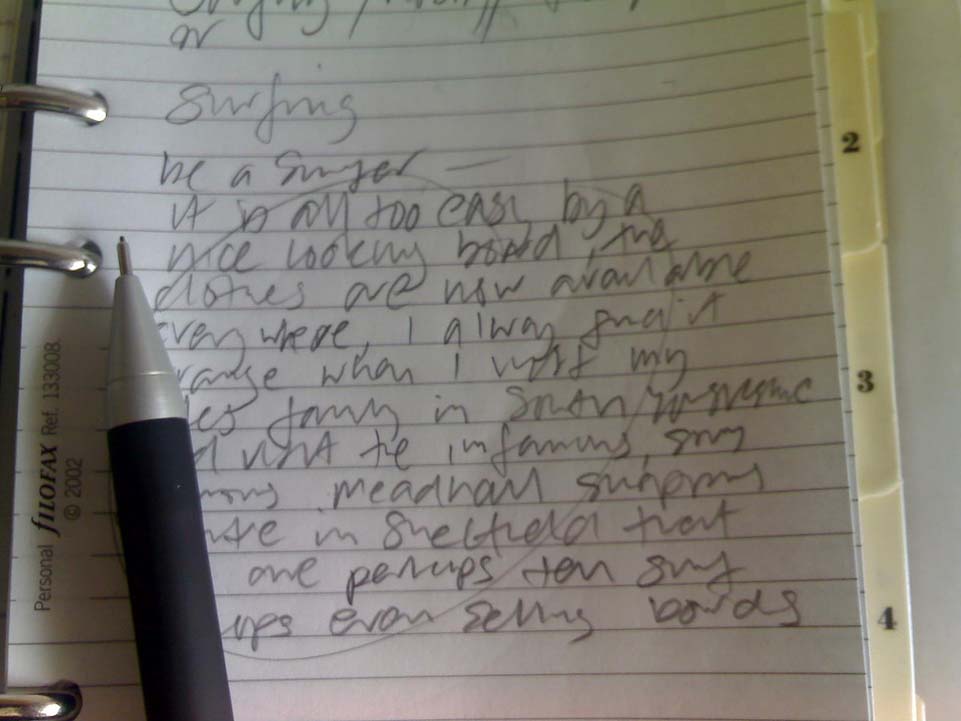 or
Surfing
be a surfer —
it is all too easy by a
nice looking board, the
clothes are now available
everywhere, I always find it
range when I visit my
family in South Yorkshire
visit the infamous, 
meadhall shopping
in Sheffield that
are perhaps ten surf
ups even selling boards
Personal FILOFAX Ref. 133008.
© 2002
2
3
4